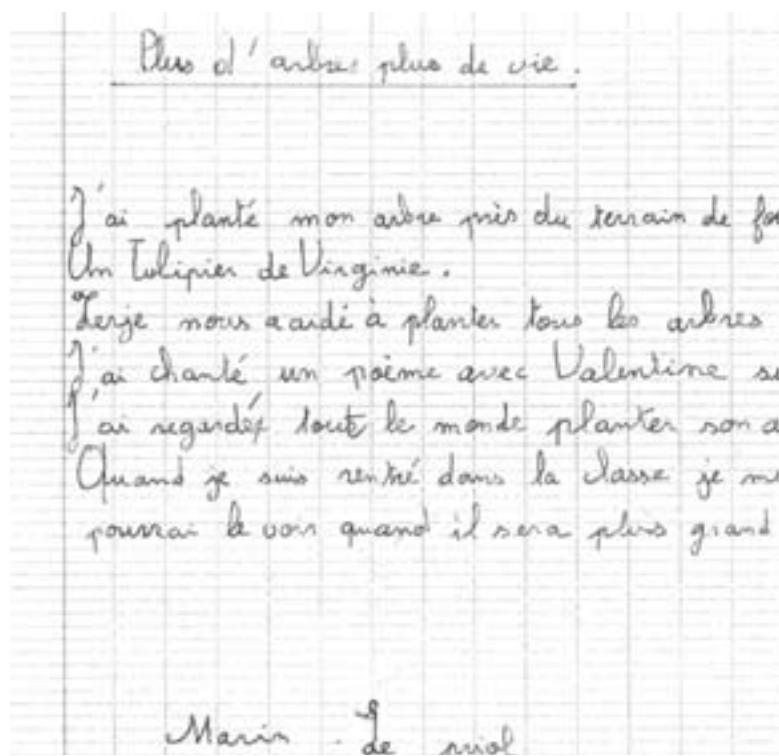 Plus d'arbres plus de vie.
J'ai planté mon arbre près du terrain de fo
Un Tulipier de Virginie.
Serje nous a aidé à planter tous les arbres
J'ai chanté un poème avec Valentine su
J'ai regardé tout le monde planter son a
Quand je suis rentré dans la classe je me
pourrai le voir quand il sera plus grand
Marin